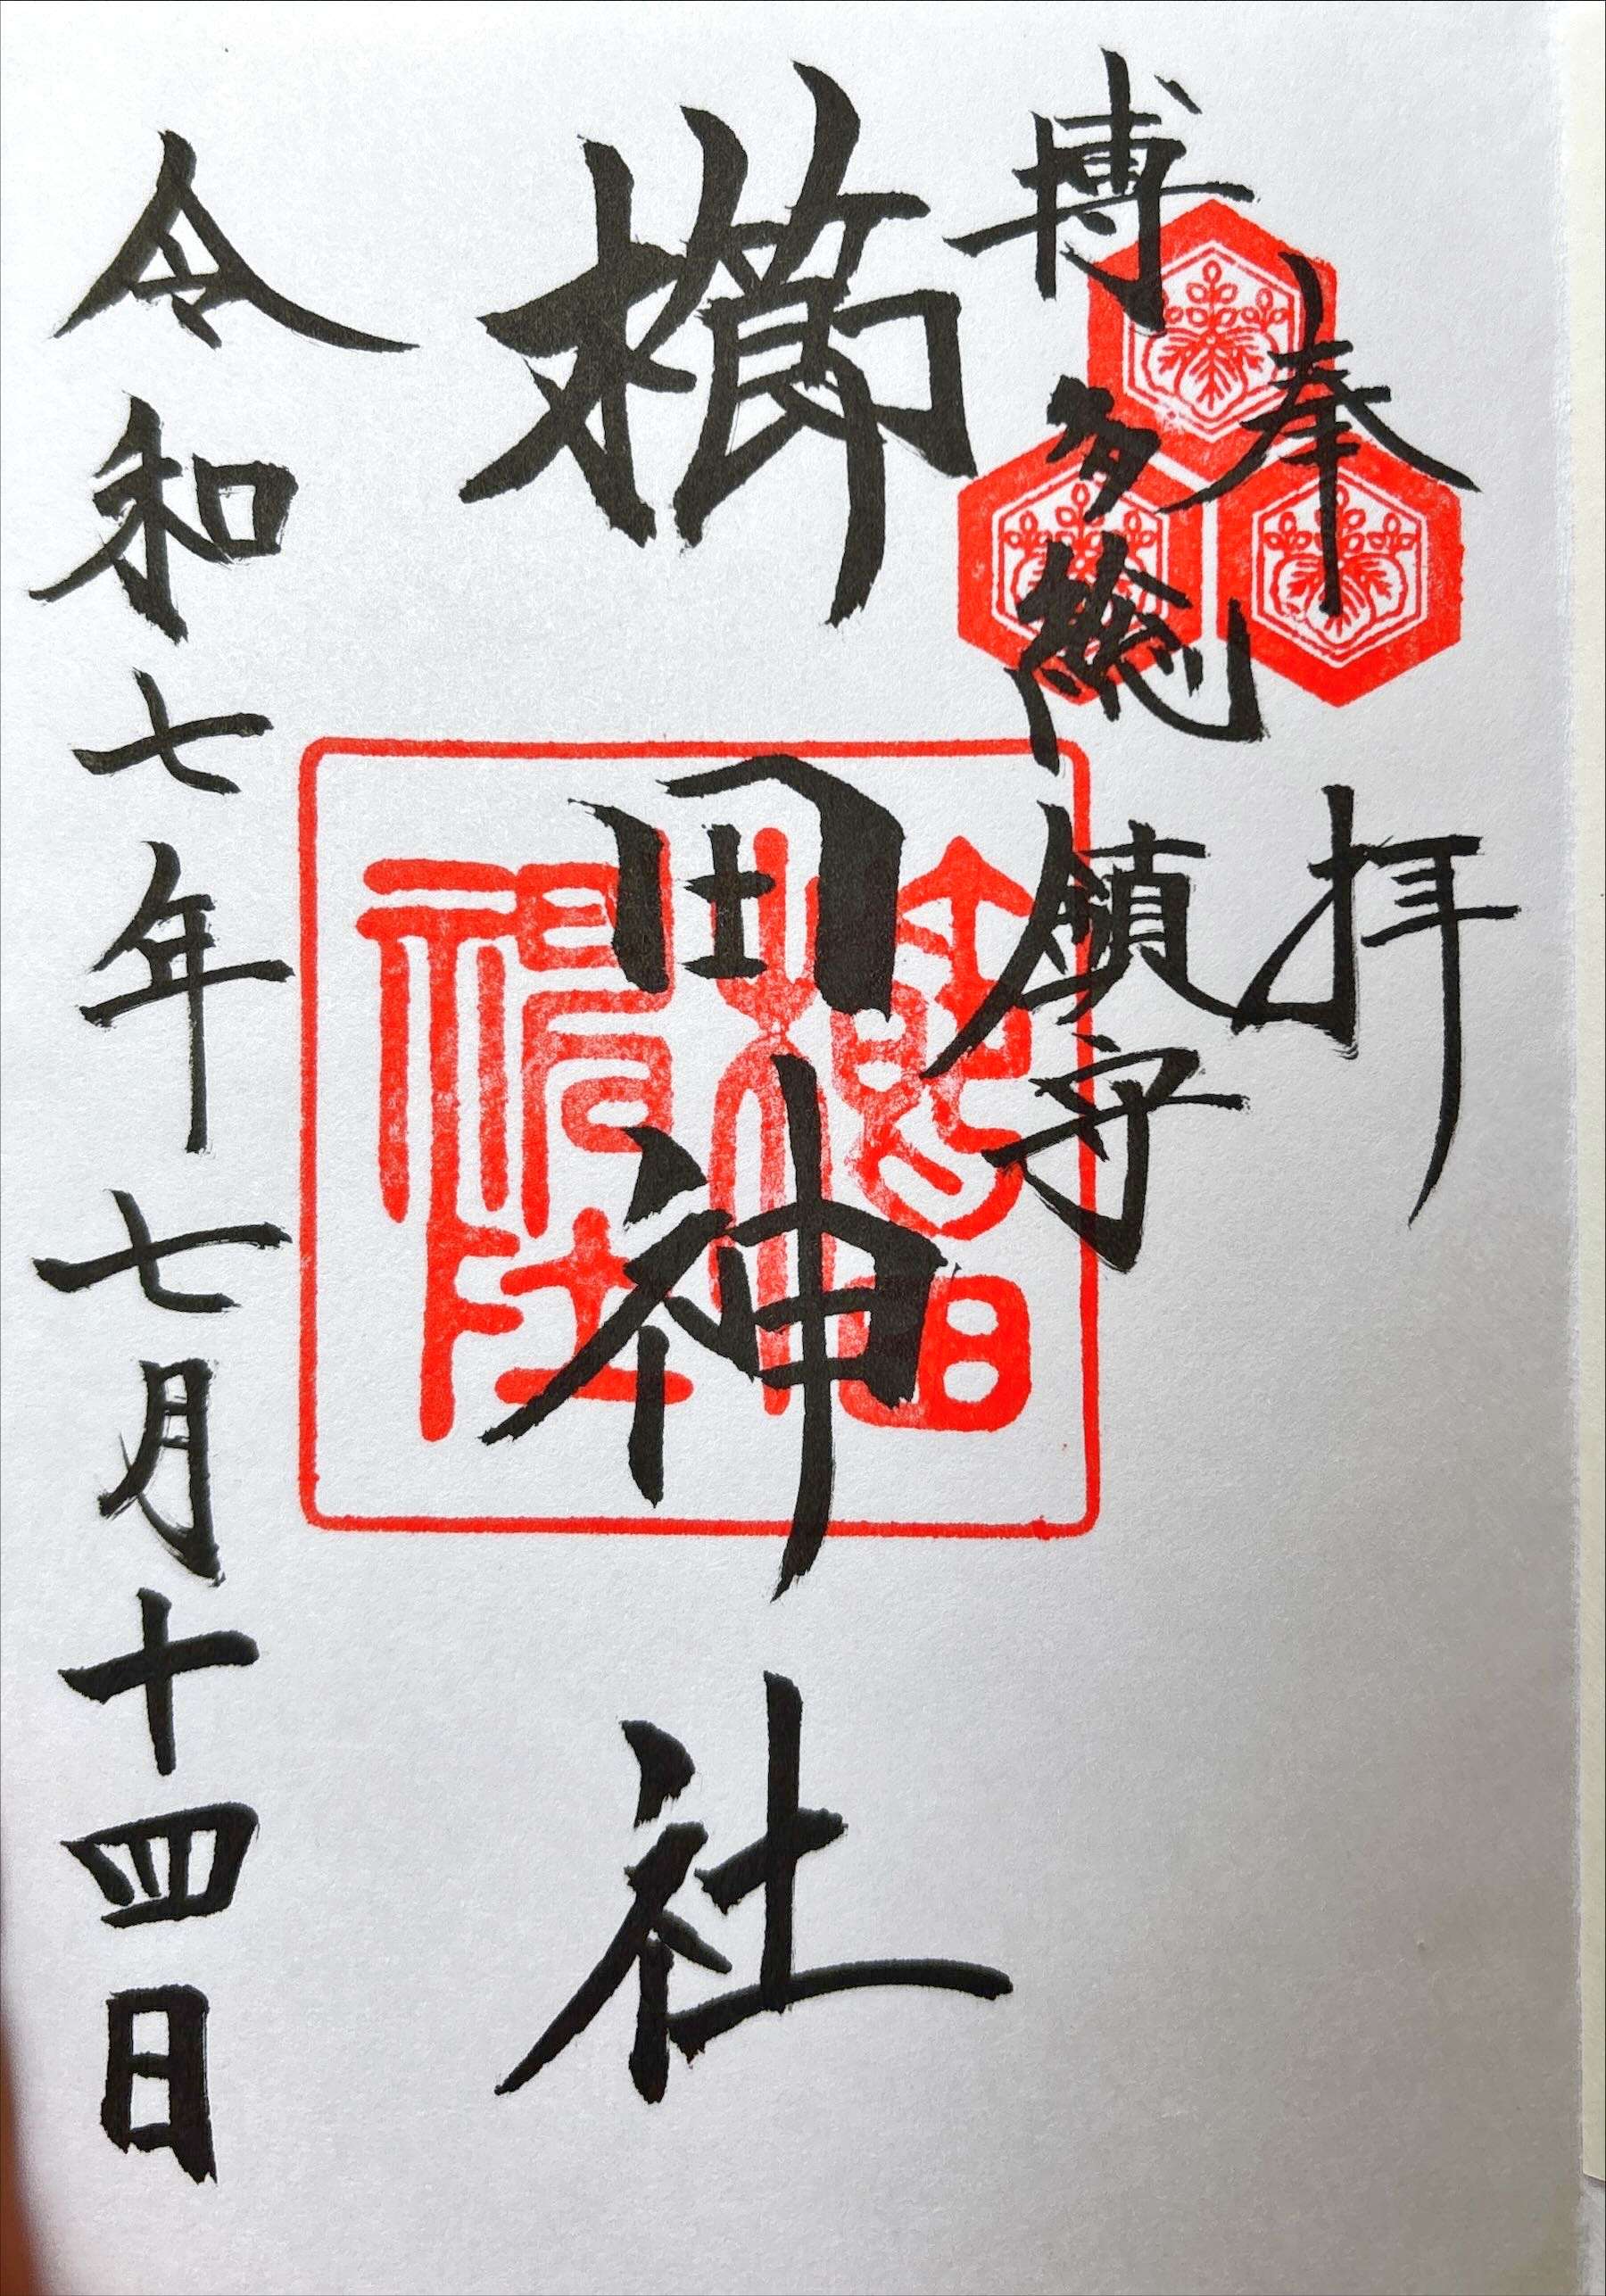 奉拝
博多總鎮守
櫛田神社
令和七年七月十四日
櫛田神社